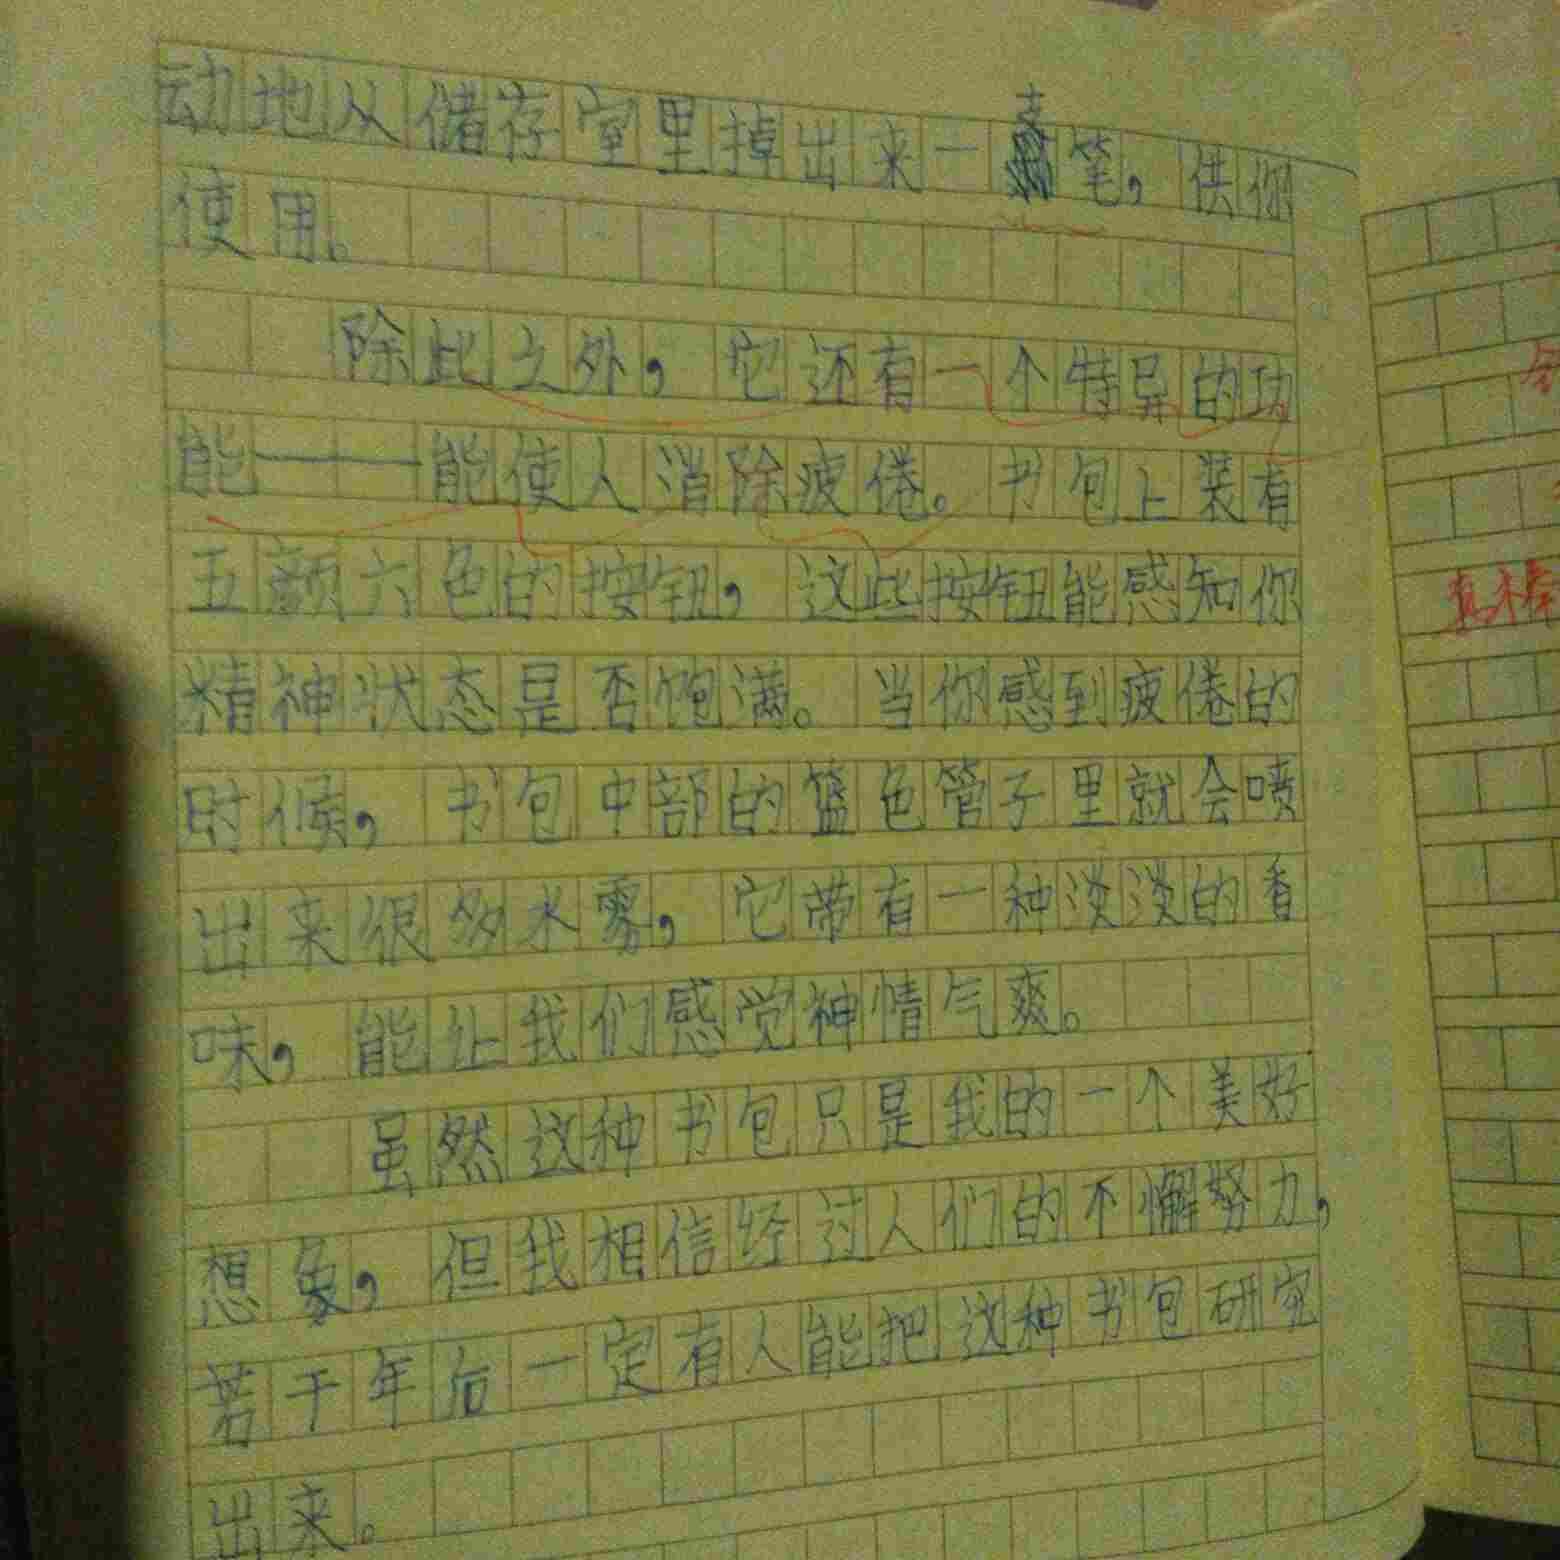 动地从储存室里掉出来一支笔，供你
使用。
除此之外，它还有一个特异的功
能——能使人消除疲倦。书包上装有
五颜六色的按钮，这些按钮能感知你
精神状态是否饱满。当你感到疲倦的
时候，书包中部的篮色管子里就会喷
出来很多水雾，它带有一种淡淡的香
味，能让我们感觉神情气爽。
虽然这种书包只是我的一个美好
想象，但我相信经过人们的不懈努力，
若干年后一定有人能把这种书包研究
出来。